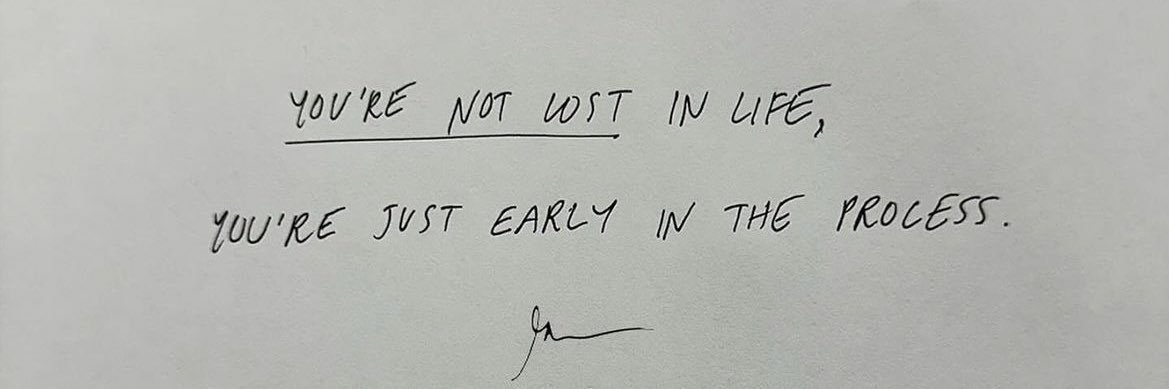 YOU'RE NOT LOST IN LIFE,
YOU'RE JUST EARLY IN THE PROCESS.